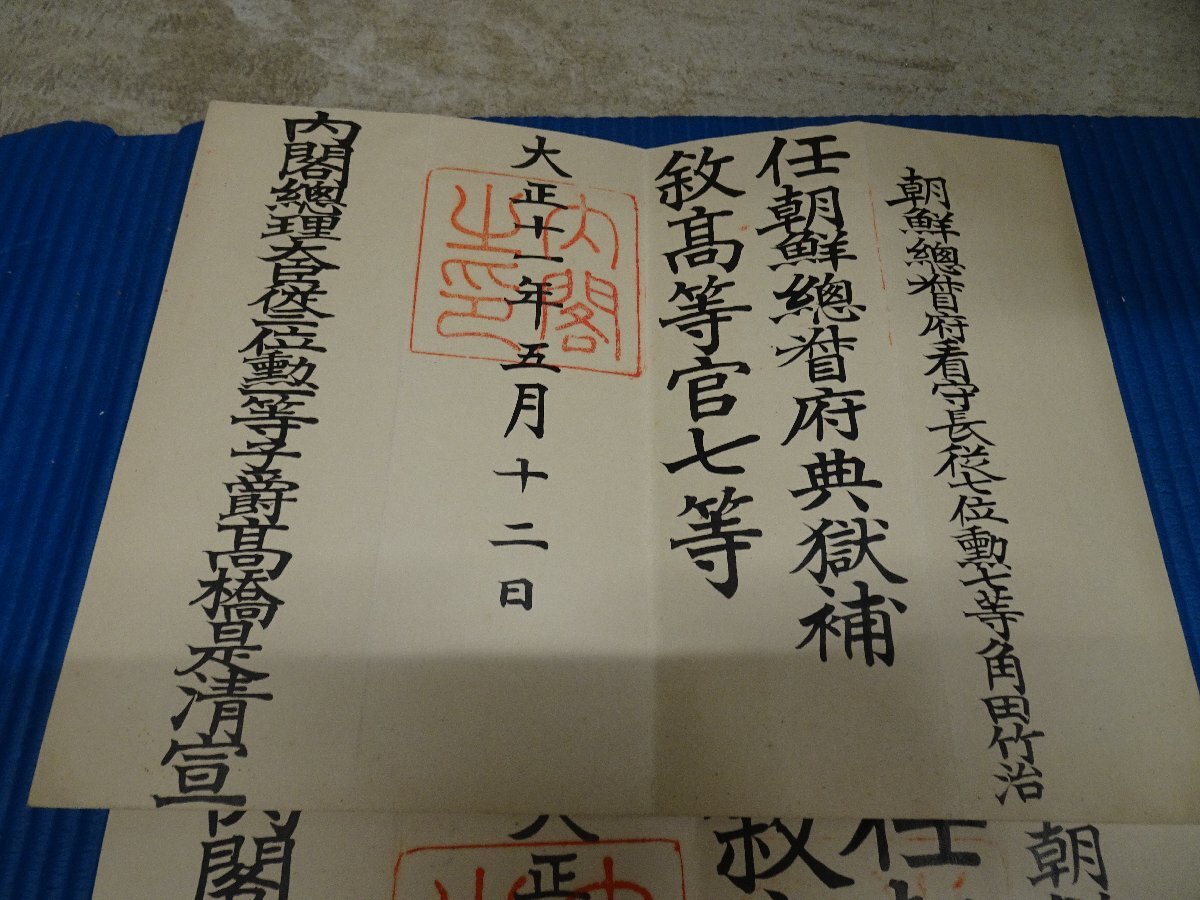 朝鮮總督府看守長從七位勳七等角田竹治
任朝鮮總督府典獄補
敘高等官七等
大正十一年五月十二日
內閣之印
內閣總理大臣從二位勳一等子爵髙橋是清宣
朝鮮
任
敘
大正
內閣